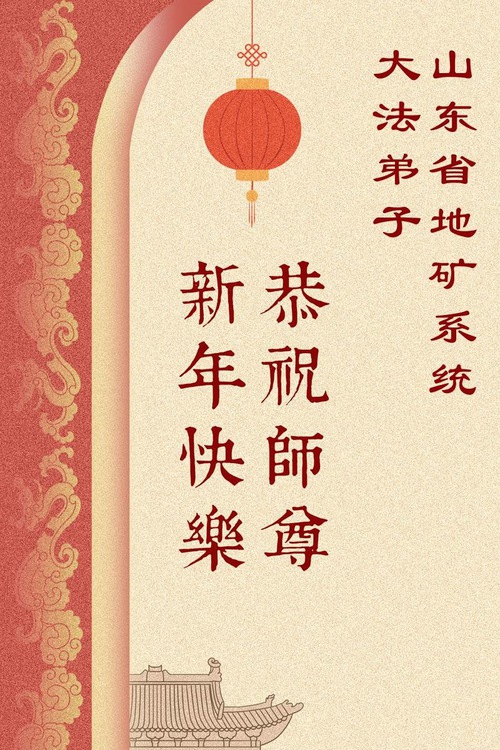 山东省地矿系统
大法弟子
恭祝師尊
新年快樂